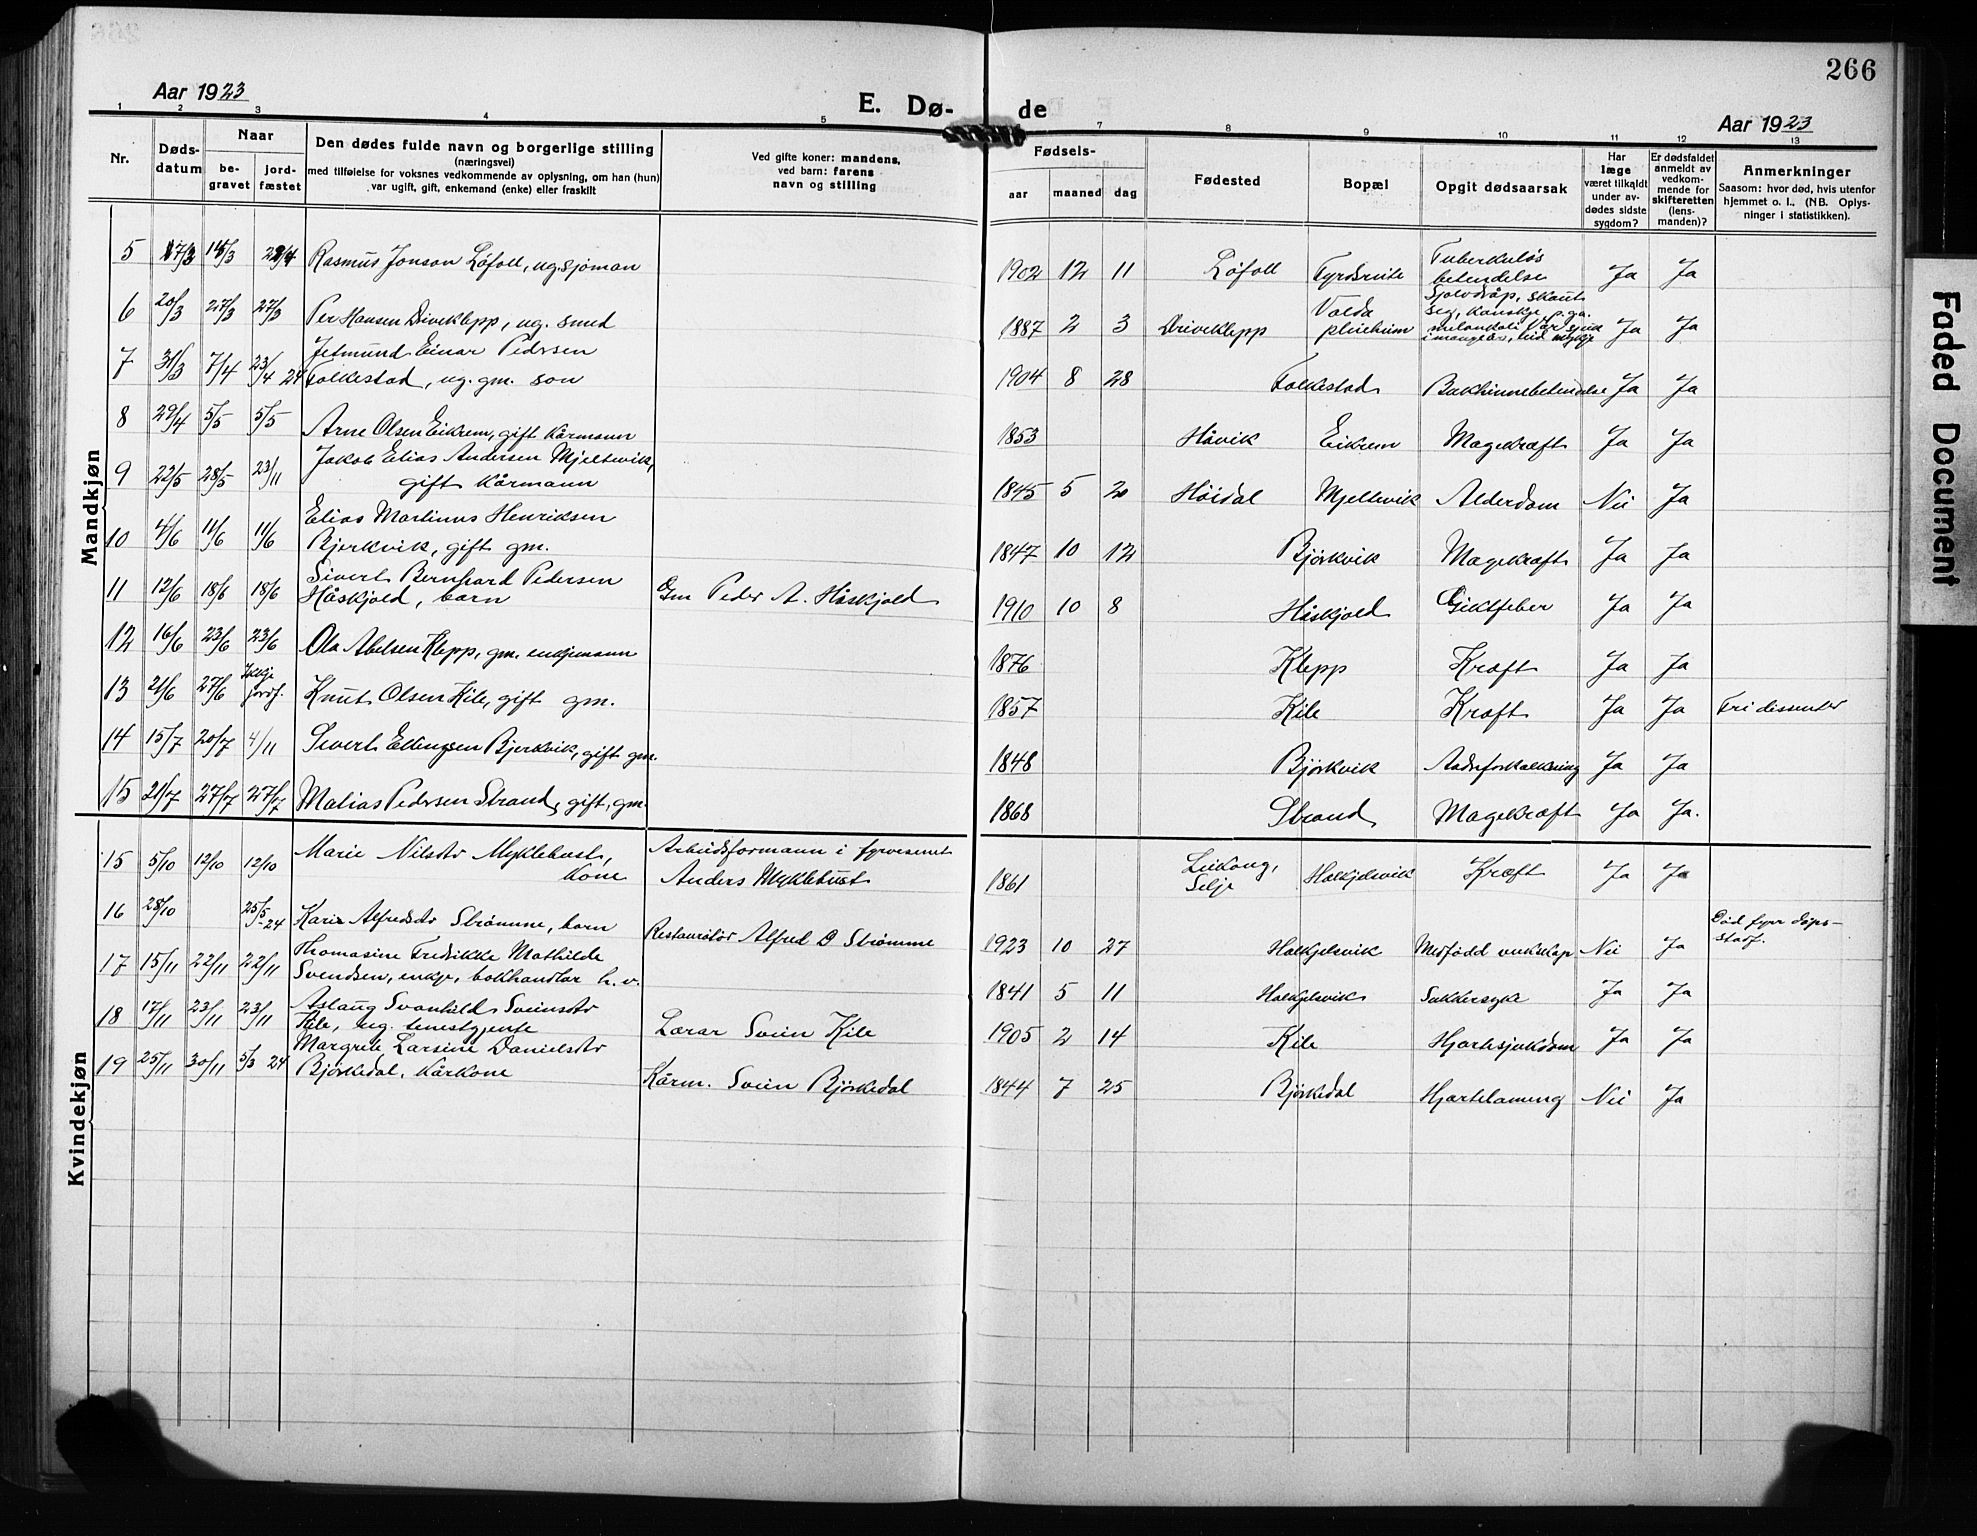 266
Aar 1923
E. Dø-
de
Aar 1923
1 2 3 4 5 7 8 9 10 11 12 13
Nr.
Døds-
datum
Naar
be-
gravet
jord-
fæstet
Den dødes fulde navn og borgerlige stilling
(næringsvei)
med tilføielse for voksnes vedkommende av oplysning, om han (hun)
var ugift, gift, enkemand (enke) eller fraskilt
Ved gifte koner: mandens,
ved barn: farens
navn og stilling
Fødsels-
aar maaned dag
Fødested
Bopæl
Opgit dødsaarsak
Har
læge
været tilkaldt
under av-
dødes sidste
sygdom?
Er dødsfaldet
anmeldt av
vedkom-
mende for
skifteretten
(lens-
manden)?
Anmerkninger
Saasom: hvor død, hvis utenfor
hjemmet o. l., (NB. Oplys-
ninger i statistikken).
Mandkjøn
5 Rasmus Jonson Løfoll, ug. sjøman 1902 12 11 Løfoll Fyrdsreite Tuberkuløs
betendelse Ja Ja
6 20/3 27/3 27/3 Per Hansen Driveklepp, ug. smed 1887 2 3 Driveklepp Volda
pleieheim Sjølvdråp, skaut
seg, kanskje p.ga.
melankoli Var sjuk
Ja Ja
7 31/3 7/4 23/4 24 Jetmund Einar Pedersen
Folkestad, ug. gm. son 1904 8 28 Folkestad Bukhinnebetendelse Ja Ja
8 29/4 5/5 5/5 Arne Olsen Eikrem, gift kårmann 1853 Håvik Eikrem Magekræft Ja Ja
9 22/5 28/5 23/11 Jakob Elias Andersen Mjeltevik,
gift kårmann 1845 5 20 Høidal Mjeltevik Alderdom Nei Ja
10 4/6 11/6 11/6 Elias Martinus Henriksen
Bjerkvik, gift gm. 1847 10 12 Bjørkvik Magekræft Ja Ja
11 12/6 18/6 18/6 Sivert Bernhard Pedersen
Håskjold, barn Gm Peder A. Håskjold 1910 10 8 Håskjold Giktfeber Ja Ja
12 16/6 23/6 23/6 Ola Abelsen Klepp, gm. enkjemann 1876 Klepp Kræft Ja Ja
13 21/6 27/6 Ikkje
jordf. Knut Olsen Kile, gift gm. 1857 Kile Kræft Ja Ja Fri dissenter
14 15/7 20/7 4/11 Sivert Ellingsen Bjerkvik, gift gm. 1848 Bjørkvik Aadreforkalkning Ja Ja
15 21/7 27/7 27/7 Matias Pedersen Strand, gift, gm. 1868 Strand Magekræft Ja Ja.
Kvindekjøn
15 5/10 12/10 12/10 Marie Nilsdtr Myklebust,
kone Arbeidsformann i fyrvesenet
Anders Myklebust 1861 Leikong,
Selje Halkjelsvik Kræft Ja Ja
16 28/10 25/5-24 Kari Alfredsdtr Strømme, barn Restauratør Alfred D Strømme 1923 10 27 Halkjelsvik Medfødd veikskap Nei Ja Død fyrr dåps-
stadf.
17 15/11 22/11 22/11 Thomasine Fredrikke Mathilde
Svendsen, enkje, bokhandlar h. v. 1841 5 11 Halkjelsvik Sukkersyke Ja Ja
18 17/11 23/11 23/11 Aslaug Svanhild Sveinsdtr
Kile, ug. tenestgjente Lærar Svein Kile 1905 2 14 Kile Hjartesjukdom Ja Ja
19 25/11 30/11 5/3 24 Margrete Larsine Danielsdtr
Bjørkedal, kårkone Kårm. Svein Bjørkedal 1844 7 25 Bjørkedal Hjartelameng Nei Ja
Faded Document